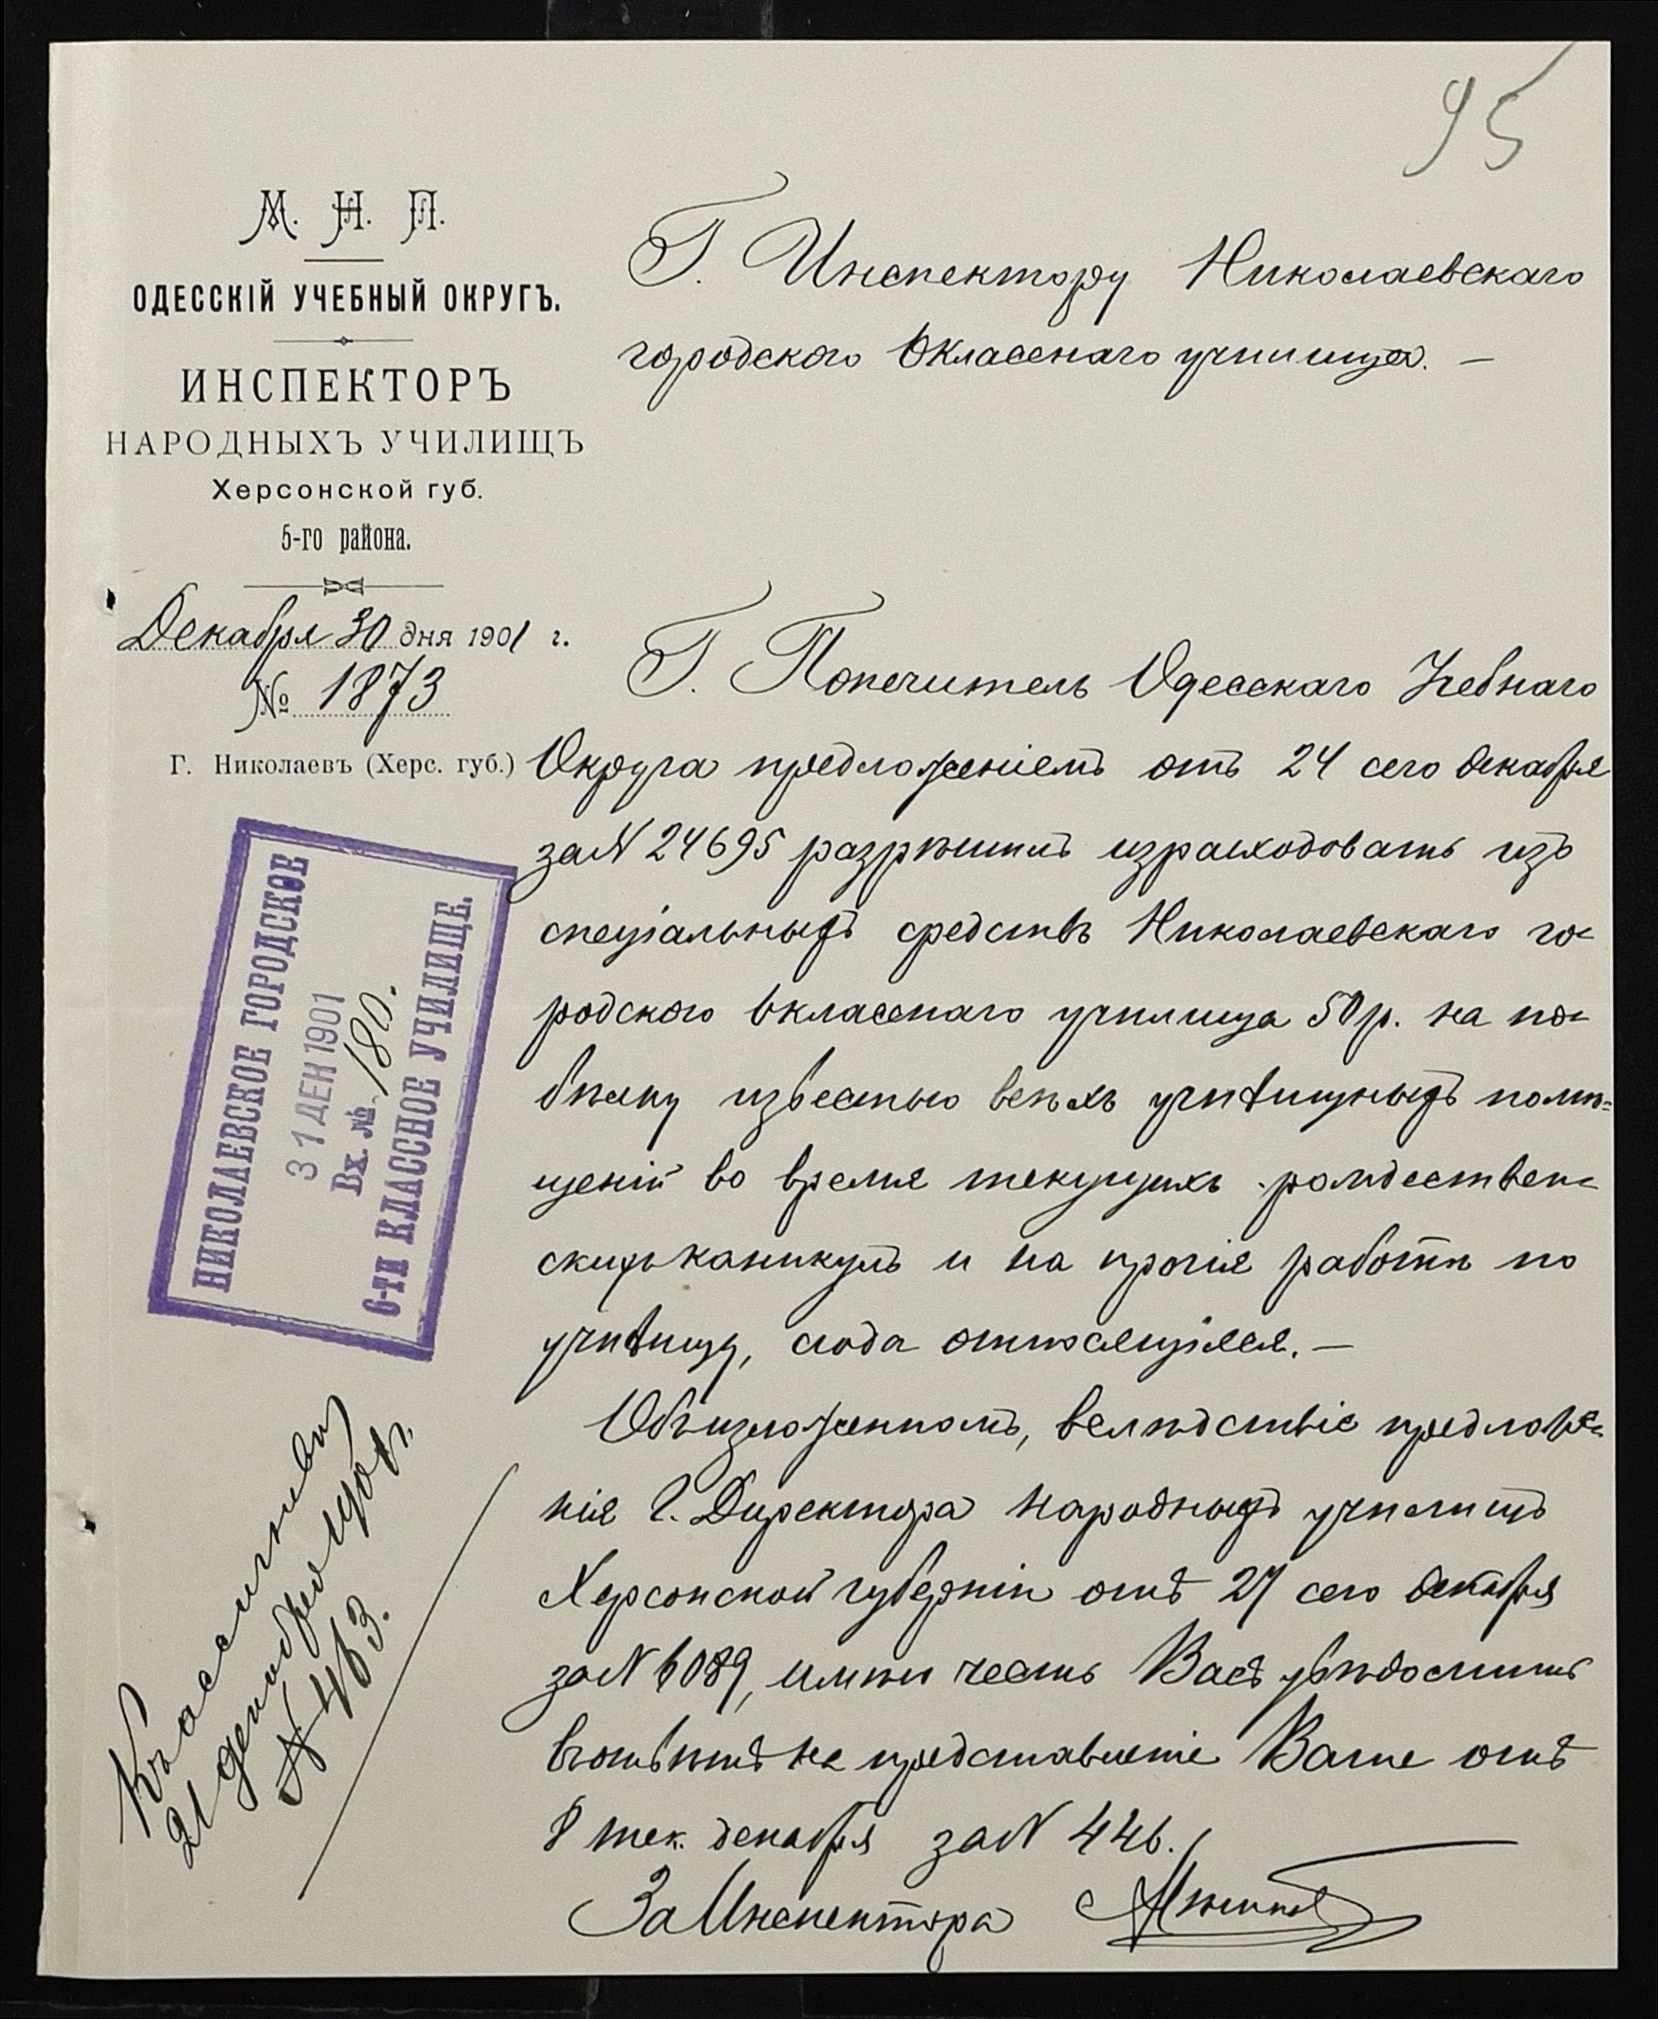 95
М. Н. П.
ОДЕССКІЙ УЧЕБНЫЙ ОКРУГЪ.
ИНСПЕКТОРЪ
НАРОДНЫХЪ УЧИЛИЩЪ
Херсонской губ.
5-го района.
Декабря 30 дня 1901 г.
№ 1873
Г. Николаевъ (Херс. губ.)
Г. Инспектору Николаевскаго
городского 6классного училища. —
Г. Попечитель Одесскаго Учебнаго
Округа предложеніемъ отъ 24 сего декабря
за N 24695 разрѣшилъ израсходовать изъ
спеціальныхъ средствъ Николаевскаго го-
родского 6классного училища 50 р. на по-
бѣлку известью всѣхъ училищныхъ помѣ-
щеній во время текущихъ рождествен-
скихъ каникулъ и на прочія работы по
училищу, сюда относящіяся. —
Объ изложенномъ, вслѣдствіе предложе-
нія Г. Директора народныхъ училищъ
Херсонской губерніи отъ 27 сего декабря
за N 6089, имѣю честь Васъ увѣдомить
въ отвѣтъ на представленіе Ваше отъ
8 тек. декабря за N 446.
За Инспектора
НИКОЛАЕВСКОЕ ГОРОДСКОЕ
31 ДЕК 1901
Вх. № 180.
6-ТИ КЛАССНОЕ УЧИЛИЩЕ.
Къ ассигновкѣ
21 декабря 1901 г.
N 463.